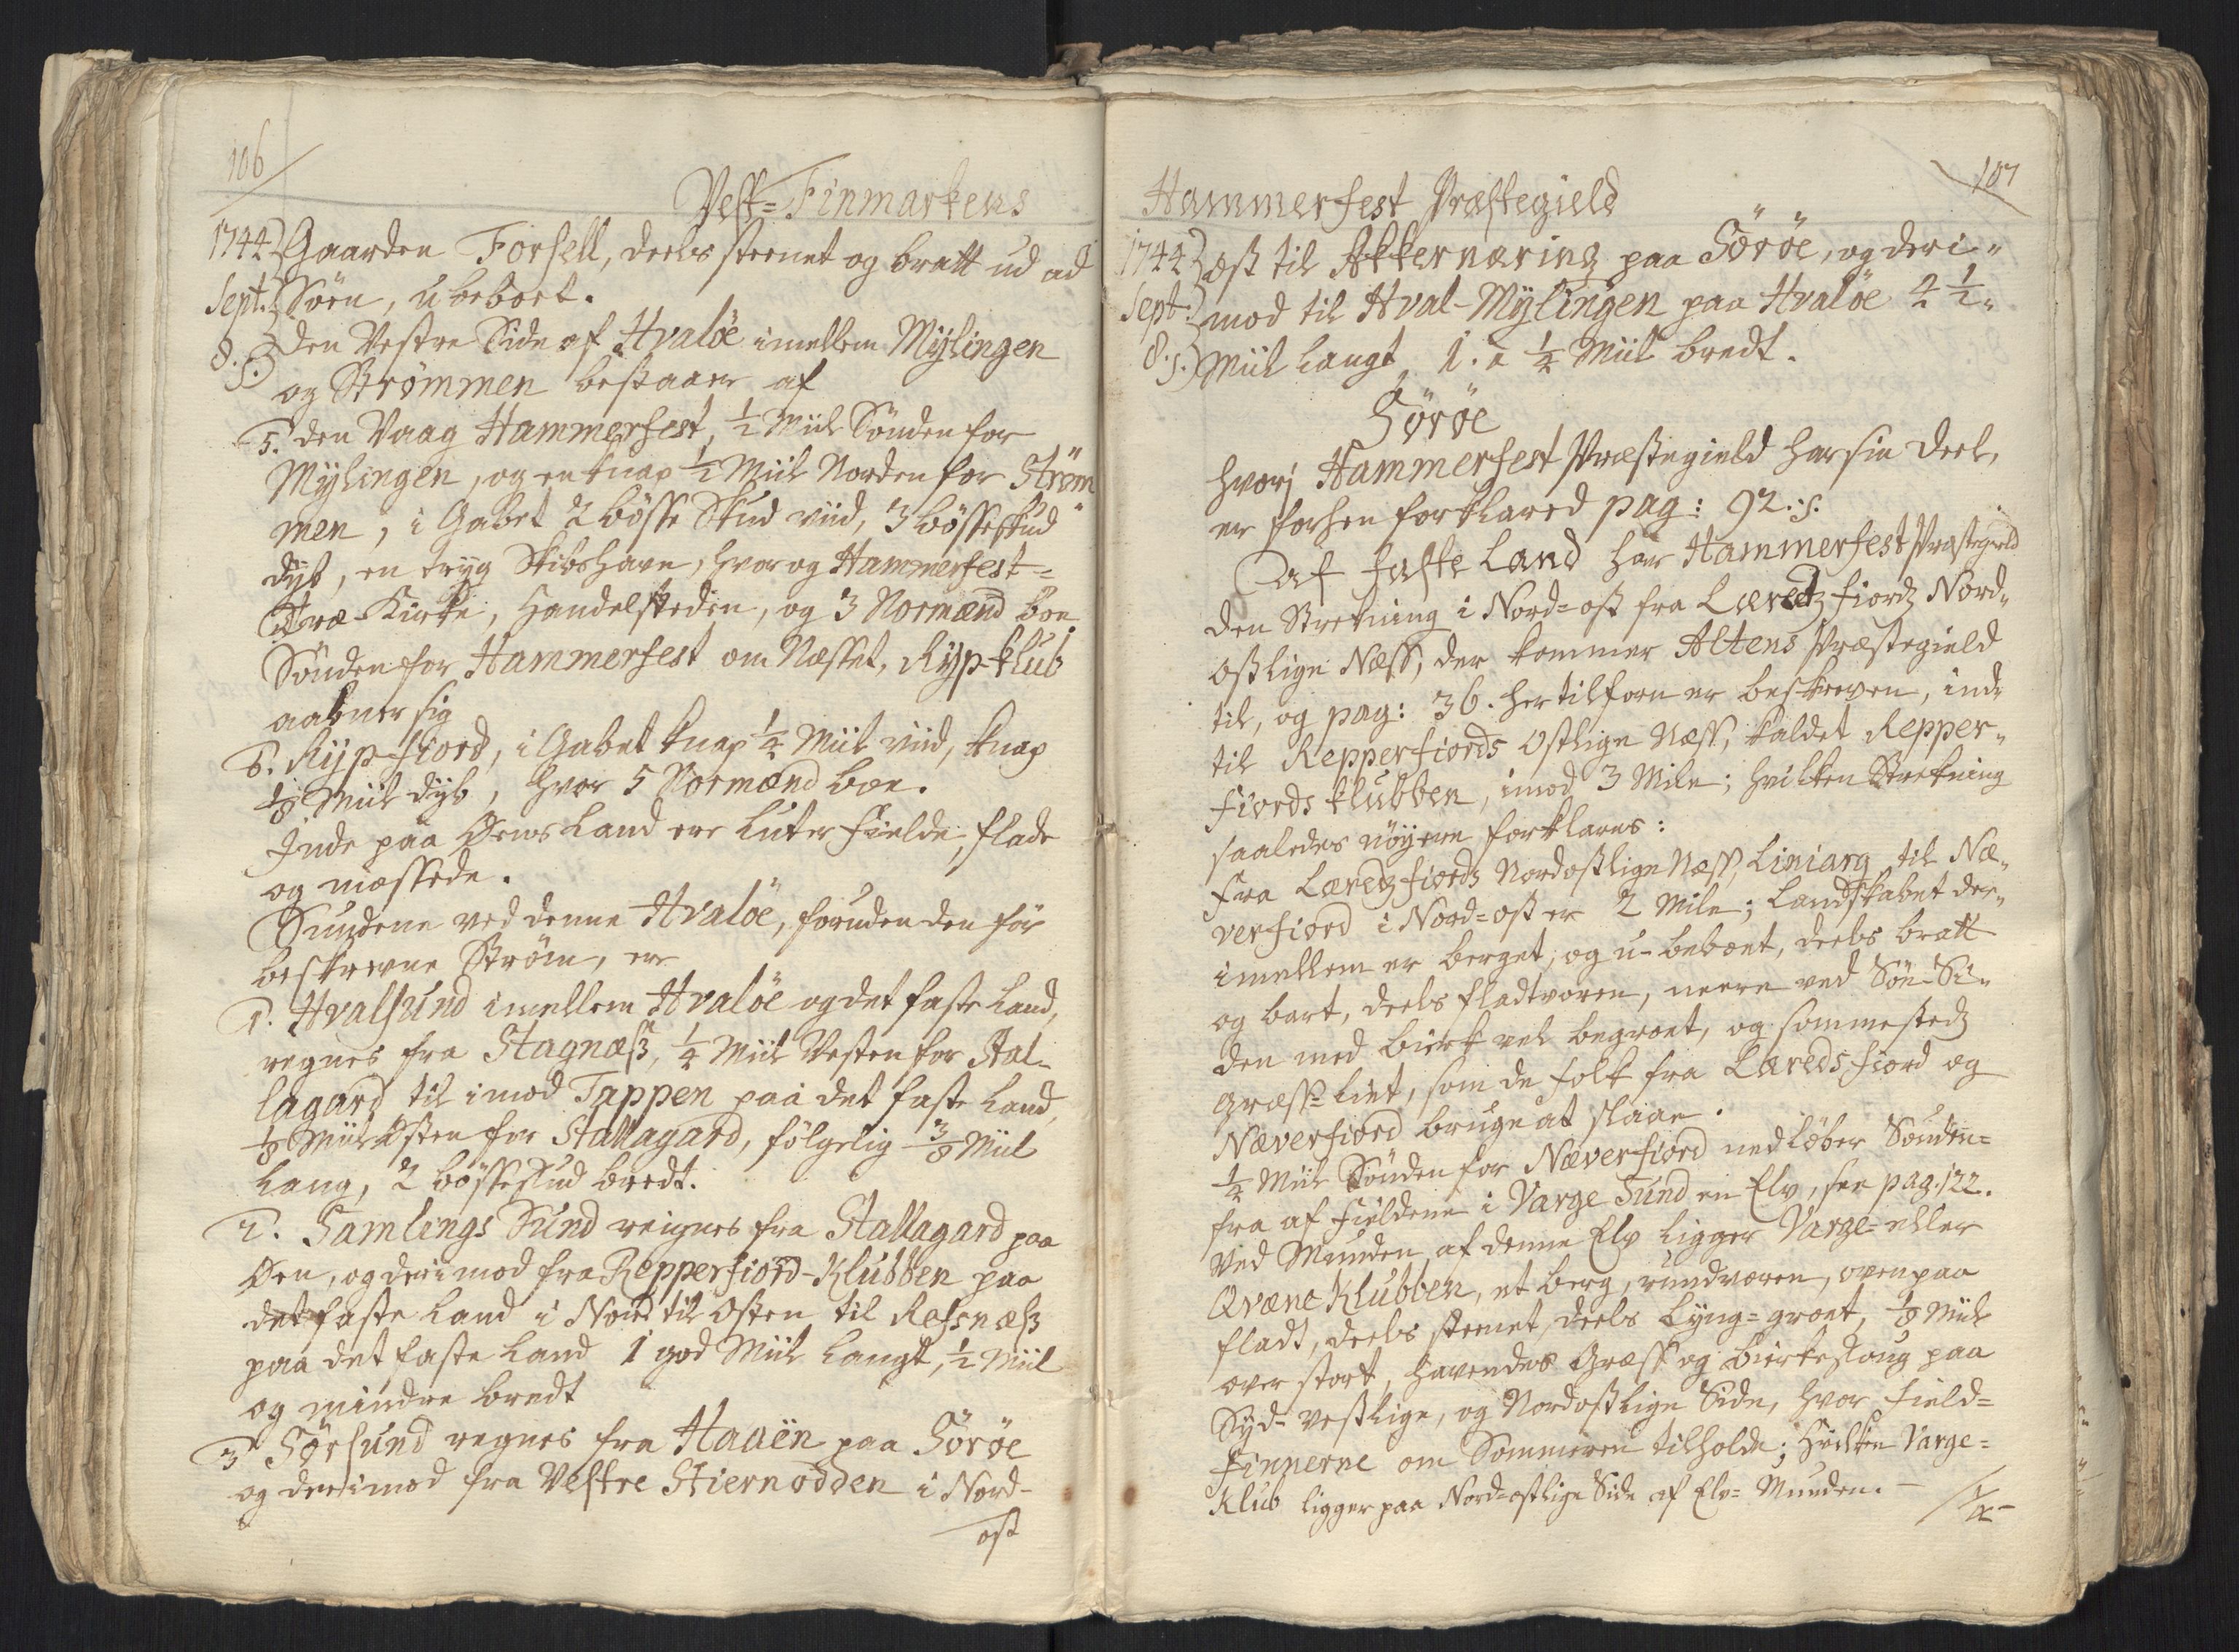 106
Vest=Finmarkens
1744 Gaarden Forsell, deels steenet og bratt ud ad
Sept: Söen, ubeboet.
8.s. Den Vestre Side af Hvalöe imellem Mÿlingen
og Strømmen bestaaer af
5. den Vaag Hammerfest, 1/2 Miil Sönden for
Mÿlingen, og en knap 1/2 Miil Norden for Ström„
men, i Gabet 2 bösse Skud viid, 3 bösseskud
dÿb, en tryg Skibshavn, hvor og Hammerfest=
Træ-Kirke, Handelsteden, og 3 Normænd boe.
Sönden for Hammerfest om Næsset, Rÿp-klub
aabner sig
6. Rÿp-fiord, i Gabet knap 1/4 Miil viid, knap
1/8 Miil dÿb, hvor 5 Normænd boe.
Inde paa Øens Land ere luter Fielde, flade
og mossede.
Sundene ved denne Hvalöe, foruden den för
beskrevne Ström, ere
1. Hvalsund imellem Hvalöe og det faste Land,
regnes fra Stagnæss, 1/4 Miil Vesten for Stal-
lagard til imod Tappen paa det faste Land,
1/8 Miil Østen for Stallagard, fölgelig 3/8 Miil
lang, 2 bösseskud bredt.
2. Samlings Sund reignes fra Stallagard paa
Øen, og derimod fra Repperfiord-Klubben paa
det faste Land i Nord til Osten til Refsnæss
paa det faste Land 1 god Miil langt, 1/2 Miil
og mindre bredt
3 Sörsund regnes fra Haaën paa Söröe
og derimod fra Vestre Stiernodden i Nord-
ost
107
Hammerfest Præstegield
1744 ost til Akkernæring paa Söröe, og deri„
Sept: mod til Hval-Mÿlingen paa Hvalöe 2 1/2„
8.s. Miil langt, 1. a 1/4 Miil bredt.
Söröe
hvorj Hammerfest Præstegield har sin deel,
er forhen forklared pag: 92.s.
Af faste Land har Hammerfest Præstegield
den Strekning i Nord=ost fra Læredz fiordz Nord„
ostlige Næss, der kommer Altens Præstegield
til, og pag: 36. hertilforn er beskreven, ind„
til Repperfiords Ostlige Næss, kaldet Repper„
fiords klubben, imod 3 Mile; hvilken Strekning
saaledes nöÿere forklares:
Fra Læredz fiords Nordostlige Næss, Liniarg til Næ„
verfiord i Nord=ost er 2 Mile; Landskabet der„
imellem er berget, og u-beboet, deels bratt
og bart, deels fladtvoren, neere ved Söe-Si„
den med birk vel begroet, og sommestedz
Græss=liet, som de folk fra Læreds fiord og
Næverfiord bruge at slaae.
1/4 Miil Sönden for Næverfiord nedlöber Sönden=
fra af Fieldene i Varge Sund en Elv, see pag. 122.
Ved Munden af denne Elv ligger Varge= eller
Qvæne Klubben, et berg, rundvoren, ovenpaa
fladt, deels steenet, deels Lÿng=groet, 1/8 Miil
over stort, havendes Græss og birkeskoug paa
Sÿd=vestlige, og Nordostlige Side, hvor Field=
Finnerne om Sommeren tilholde; Hvilken Varge=
Klub ligger paa Nord=ostlige Side af Elv=Munden. —
1/4 —